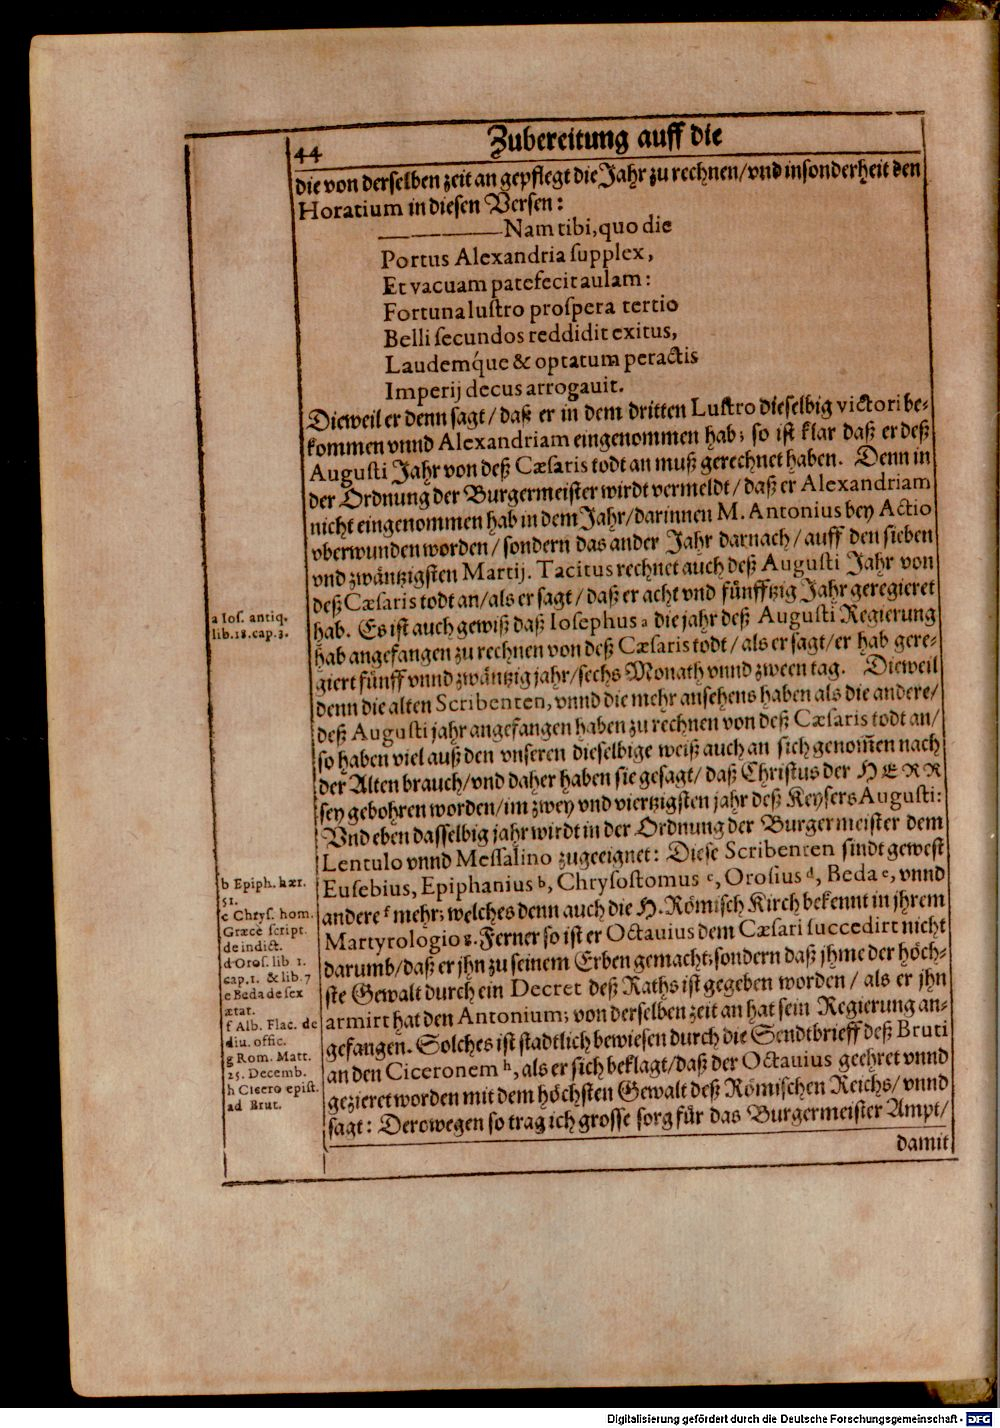 44
Zubereitung auff die
die von derselben zeit an gepflegt die Jahr zu rechnen/vnd insonderheit den
Horatium in diesen Versen:
———— Nam tibi, quo die
Portus Alexandria supplex,
Et vacuam patefecit aulam:
Fortuna lustro prospera tertio
Belli secundos reddidit exitus,
Laudemq́ue & optatum peractis
Imperij decus arrogauit.
Dieweil er denn sagt/ daß er in dem dritten Lustro dieselbig victori be-
kommen vnnd Alexandriam eingenommen hab; so ist klar daß er deß
Augusti Jahr von deß Cæsaris todt an muß gerechnet haben. Denn in
der Ordnung der Burgermeister wirdt vermeldt/ daß er Alexandriam
nicht eingenommen hab in dem Jahr/darinnen M. Antonius bey Actio
vberwunden worden/ sondern das ander Jahr darnach/ auff den sieben
vnd zwäntzigsten Martij. Tacitus rechnet auch deß Augusti Jahr von
deß Cæsaris todt an/als er sagt/ daß er acht vnd fünfftzig Jahr geregieret
hab. Es ist auch gewiß daß Iosephus a die jahr deß Augusti Regierung
hab angefangen zu rechnen von deß Cæsaris todt/ als er sagt/er hab gere-
giert fünff vnnd zwäntzig jahr/sechs Monath vnnd zween tag. Dieweil
denn die alten Scribenten, vnnd die mehr ansehens haben als die andere/
deß Augusti jahr angefangen haben zu rechnen von deß Cæsaris todt an/
so haben viel auß den vnseren dieselbige weiß auch an sich genom̃en nach
der Alten brauch/vnd daher haben sie gesagt/ daß Christus der HERR
sey gebohren worden/im zwey vnd viertzigsten jahr deß Keysers Augusti:
Vnd eben dasselbig jahr wirdt in der Ordnung der Burgermeister dem
Lentulo vnnd Messalino zugeeignet: Diese Scribenten sindt gewest
Eusebius, Epiphanius b, Chrysostomus c, Orosius d, Beda e, vnnd
andere f mehr; welches denn auch die H. Römisch Kirch bekennt in jhrem
Martyrologio g. Ferner so ist er Octauius dem Cæsari succedirt nicht
darumb/daß er jhn zu seinem Erben gemacht; sondern daß jhme der höch-
ste Gewalt durch ein Decret deß Raths ist gegeben worden/ als er jhn
armirt hat den Antonium; von derselben zeit an hat sein Regierung an-
gefangen. Solches ist stadtlich bewiesen durch die Sendtbrieff deß Bruti
an den Ciceronem h, als er sich beklagt/daß der Octauius geehret vnnd
gezieret worden mit dem höchsten Gewalt deß Römischen Reichs/ vnnd
sagt: Derowegen so trag ich grosse sorg für das Burgermeister Ampt/
damit
a Ios. antiq.
lib. 18. cap. 3.
b Epiph. hær.
51.
c Chrys. hom.
Græcè script.
de indict.
d Oros. lib 1.
cap. 1. & lib. 7
e Beda de sex
ætat.
f Alb. Flac. de
diu. offic.
g Rom. Matt.
25. Decemb.
h Cicero epist.
ad Brut.
Digitalisierung gefördert durch die Deutsche Forschungsgemeinschaft - DFG